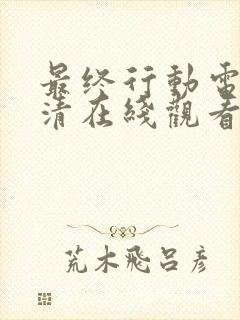 最终行動電
清在綫觀看
荒木飛呂彦